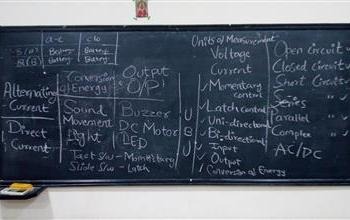 a-c
clo
Battery
Battery
Alternating
Current
Direct
Current
Conversion
of Energy
Sound
Movement
Light
Output
O/P
Buzzer
DC Motor
LED
Tact s/w - Momittary
Slide s/w - Latch
U
B
U
Units of Measurement
Voltage
Current
✓ Momentary
control
✓ Latch control
✓ Uni-directional
✓ Bi-directional
✓ Input
✓ Output
✓ Conversion of Energy
Open Circuit ✓
Closed Circuit ✓
Short Circuit ✓
Series "
Parallel "
Complex "
AC/DC